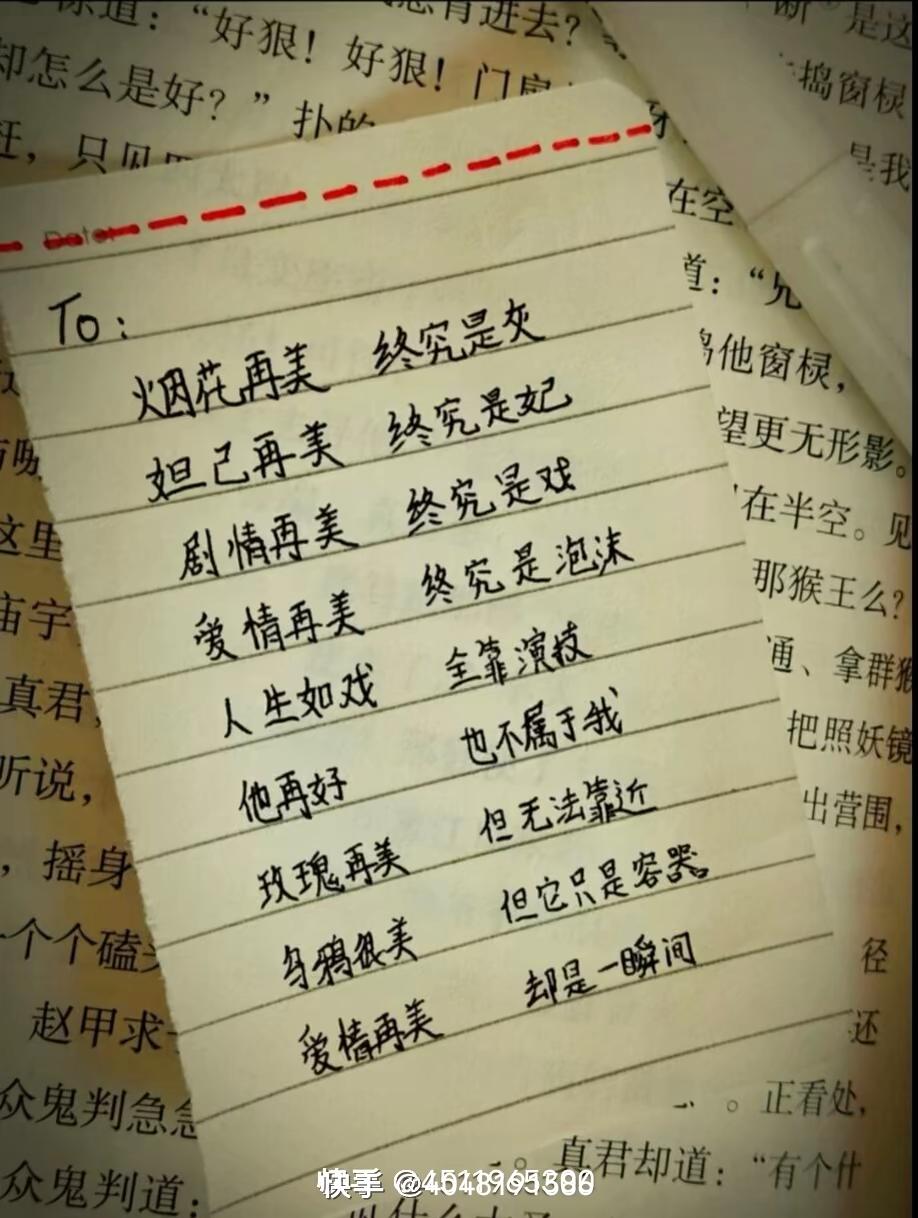 道：“好狠！好狠！门扇
却怎么是好？”扑的
狂，只见
断”是这
捣窗棂
是我
在空
道：“兄
捣他窗棂，
望更无形影。
在半空。见
那猴王么？
通、拿群猴
把照妖镜
出营围，
Date:
To：
烟花再美 终究是灰
妲己再美 终究是妃
剧情再美 终究是戏
爱情再美 终究是泡沫
人生如戏 全靠演技
他再好 也不属于我
玫瑰再美 但无法靠近
乌鸦很美 但它只是容器
爱情再美 却是一瞬间
这里
庙宇
真君，
听说，
，摇身
一个个磕
赵甲求
众鬼判急急
众鬼判道：
径
还
。正看处，
。真君却道：“有个什
快手